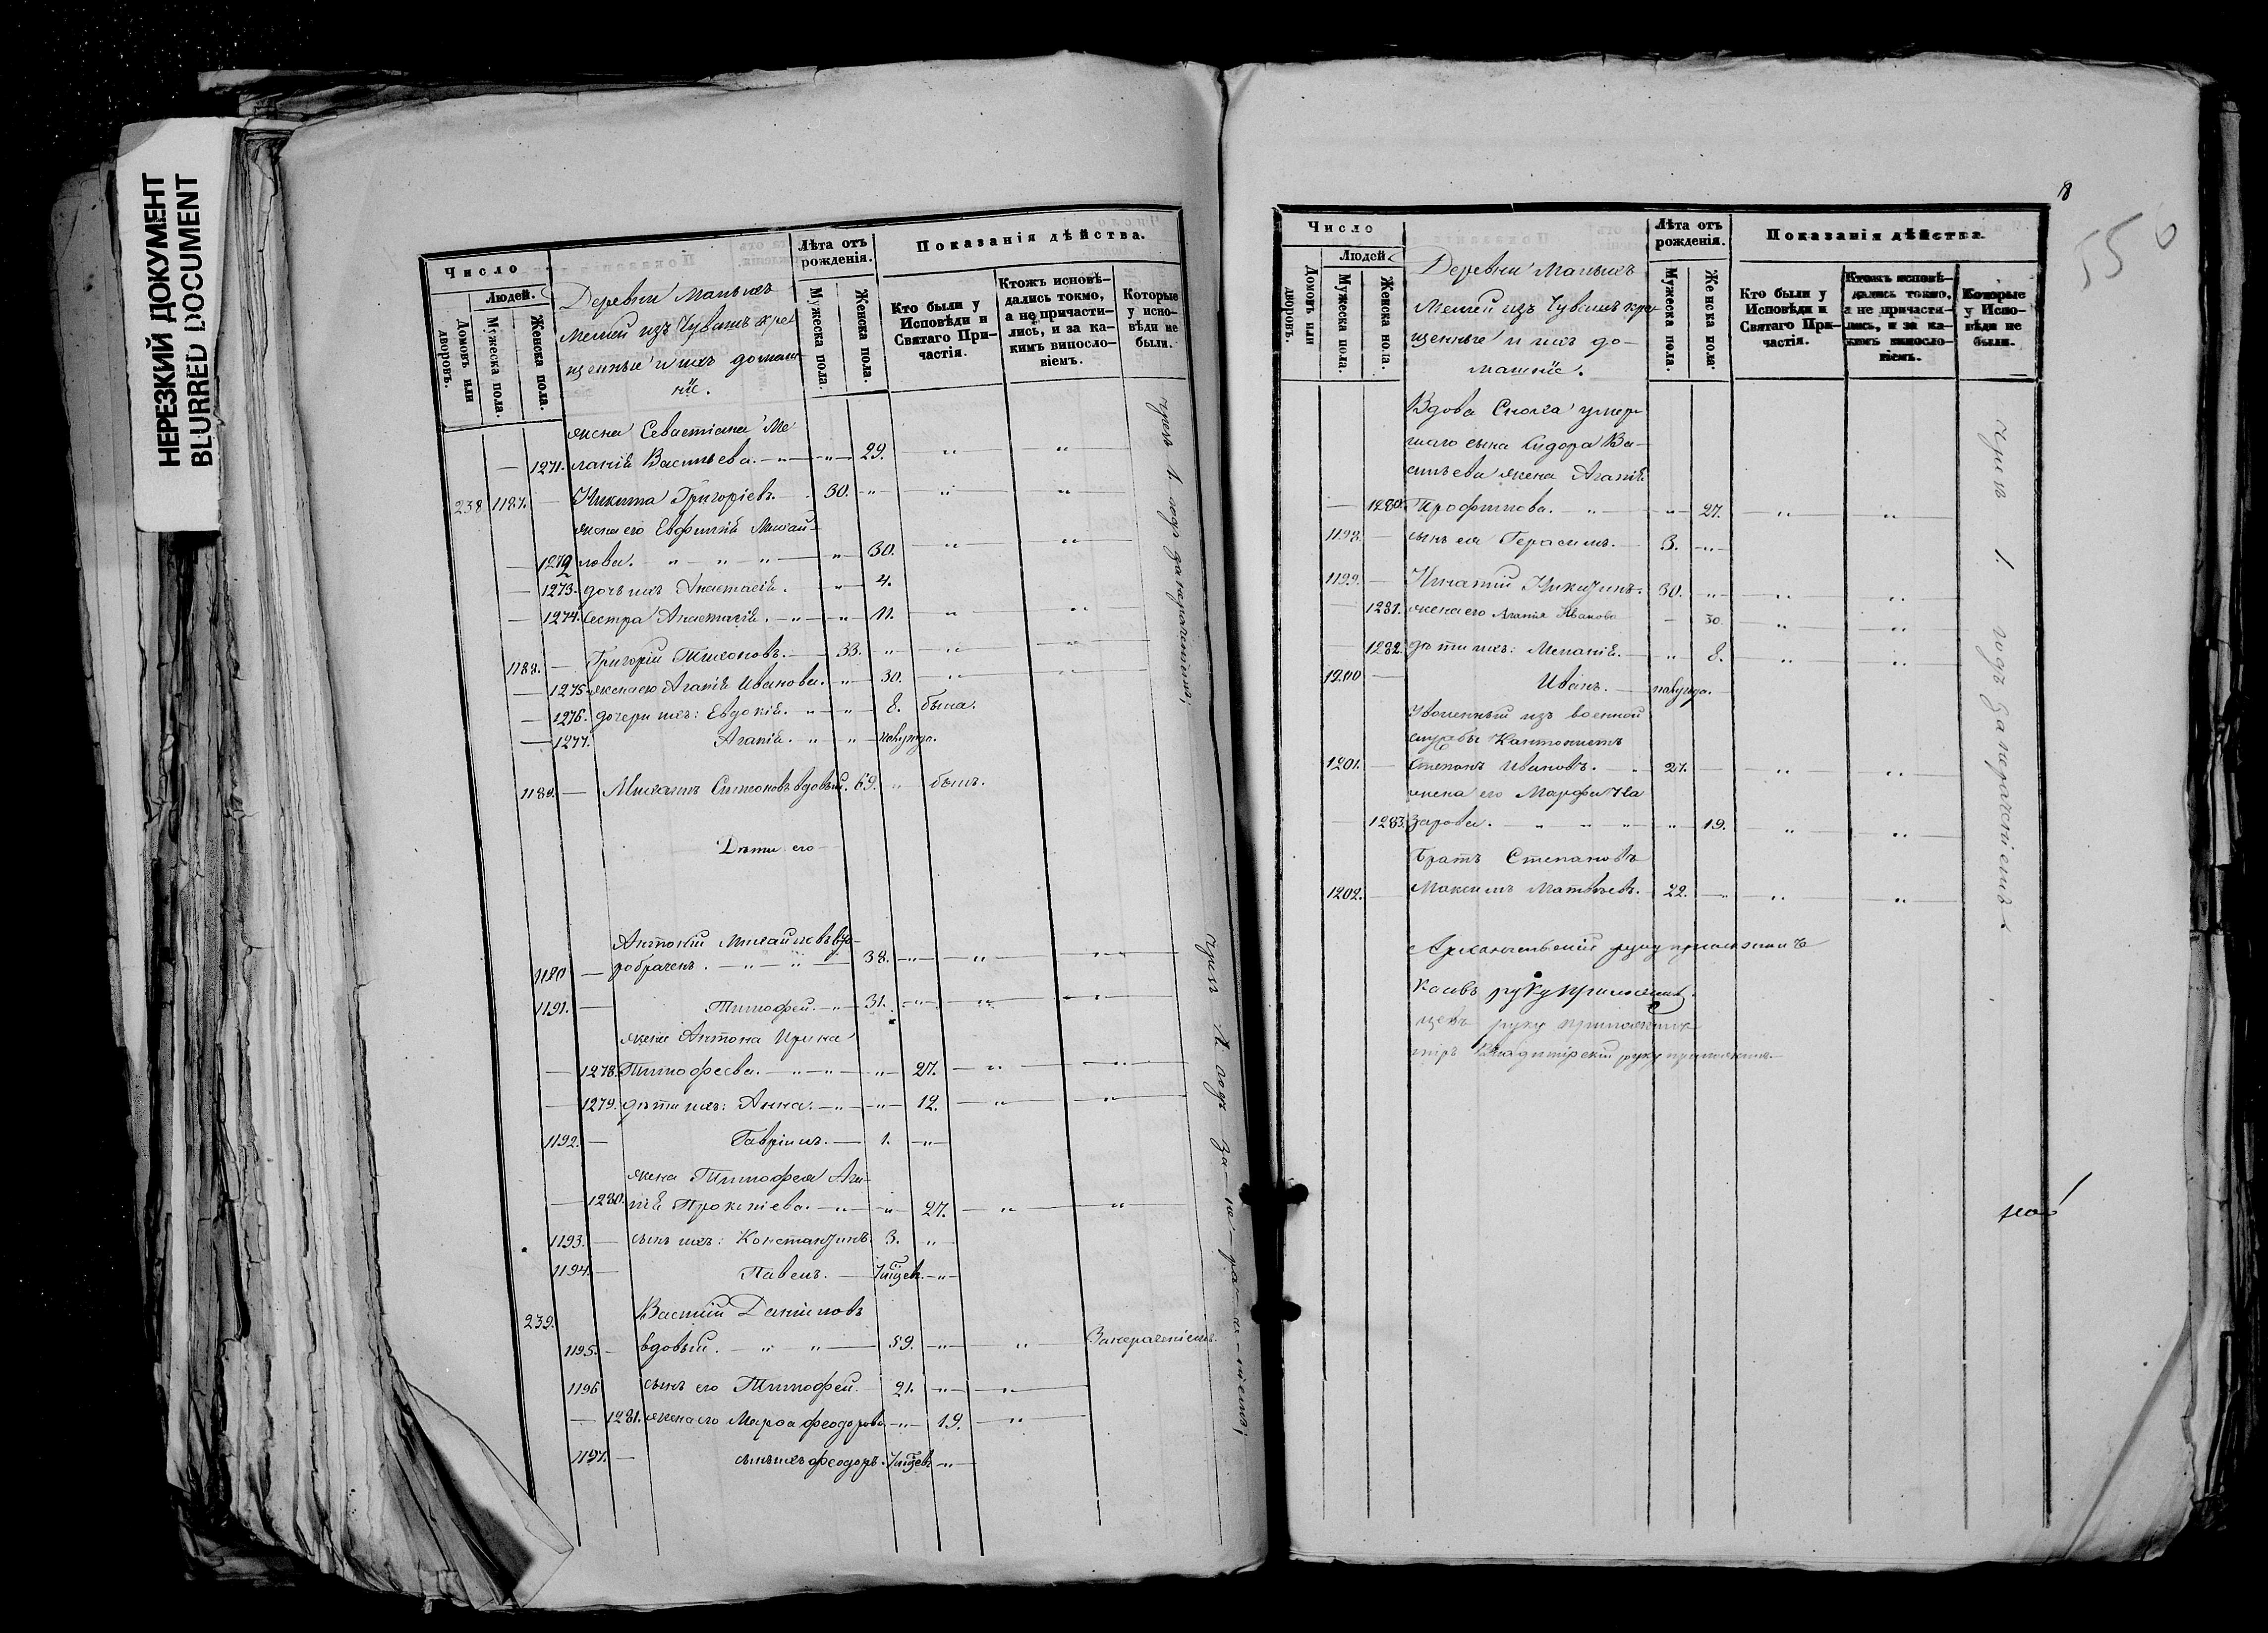 НЕРЕЗКИЙ ДОКУМЕНТ
BLURRED DOCUMENT
Число
Людей.
Домовъ или дворовъ.
Мужеска пола.
Женска пола.
Деревни Малыхъ
Мелей изъ Чувашъ кре
щенные и ихъ домаш
ніе.
Лѣта отъ рожденія.
Мужеска пола.
Женска пола.
Показанія дѣйства.
Кто были у Исповѣди и Святаго Причастія.
Ктожъ исповѣдались токмо, а не причастились, и за какимъ винословіемъ.
Которые у исповѣди не были.
жена Севастіана Ме
1271. ланія Васильева. 29.
238 1187. Никита Григорьевъ. 30.
жена его Евфимія Михай
1272 лова. 30.
1273. дочь ихъ Анастасія. 4.
1274. сестра Анастасія. 11.
1188. Григорій Тихоновъ. 33.
1275. жена его Агапія Иванова. 30.
1276. дочери ихъ: Евдокія. 8. была.
1277. Агапія. полугода.
1189. Михаилъ Симоновъ вдовый. 69. былъ.
Дѣти его
Антоній Михайловъ вто
1190 робраченъ. 38.
1191. Тимофей. 31.
жена Антона Ирина
1278. Тимофеева. 27.
1279. дѣти ихъ: Анна. 12.
1192. Гавріилъ. 1.
жена Тимофея
1280. Прокопіева. 27.
1193. сынъ ихъ: Константинъ. 3.
1194. Павелъ.
239. Василій Даниловъ
1195. вдовый. 59. Занераченіемъ.
1196 сынъ его Тимофей. 21.
1281. жена его Марфа Феодорова 19.
1197. сынъ ихъ Феодоръ.
18
550
Число
Людей.
Домовъ или дворовъ.
Мужеска пола.
Женска пола.
Деревни Малыхъ
Мелей изъ Чувашъ кре
щенные и ихъ до-
машніе.
Лѣта отъ рожденія.
Мужеска пола.
Женска пола.
Показанія дѣйства.
Кто были у Исповѣди и Святаго Причастія.
Ктожъ исповѣдались токмо, а не причастились, и за какимъ винословіемъ.
Которые у Исповѣди не были.
Вдова Сноха умер
шаго сына Сидора Ва-
сильева жена Агапія
1280. Трофимова. 27.
1198. сынъ ея Герасимъ. 3.
1199. Игнатій Никитинъ. 30.
1281. жена его Агапія Иванова 30.
1282. дѣти ихъ: Меланія. 8.
1200 Иванъ. полугода.
Уволенный изъ военной
службы Кантонистъ
1201. Степанъ Ивановъ. 27.
жена его Марфа На
1283. зарова. 19.
Братъ Степановъ
1202. Максимъ Матвѣевъ. 22.
руку приложилъ
ковъ руку приложилъ.
цевъ руку приложилъ
міръ Владимірскій руку приложилъ